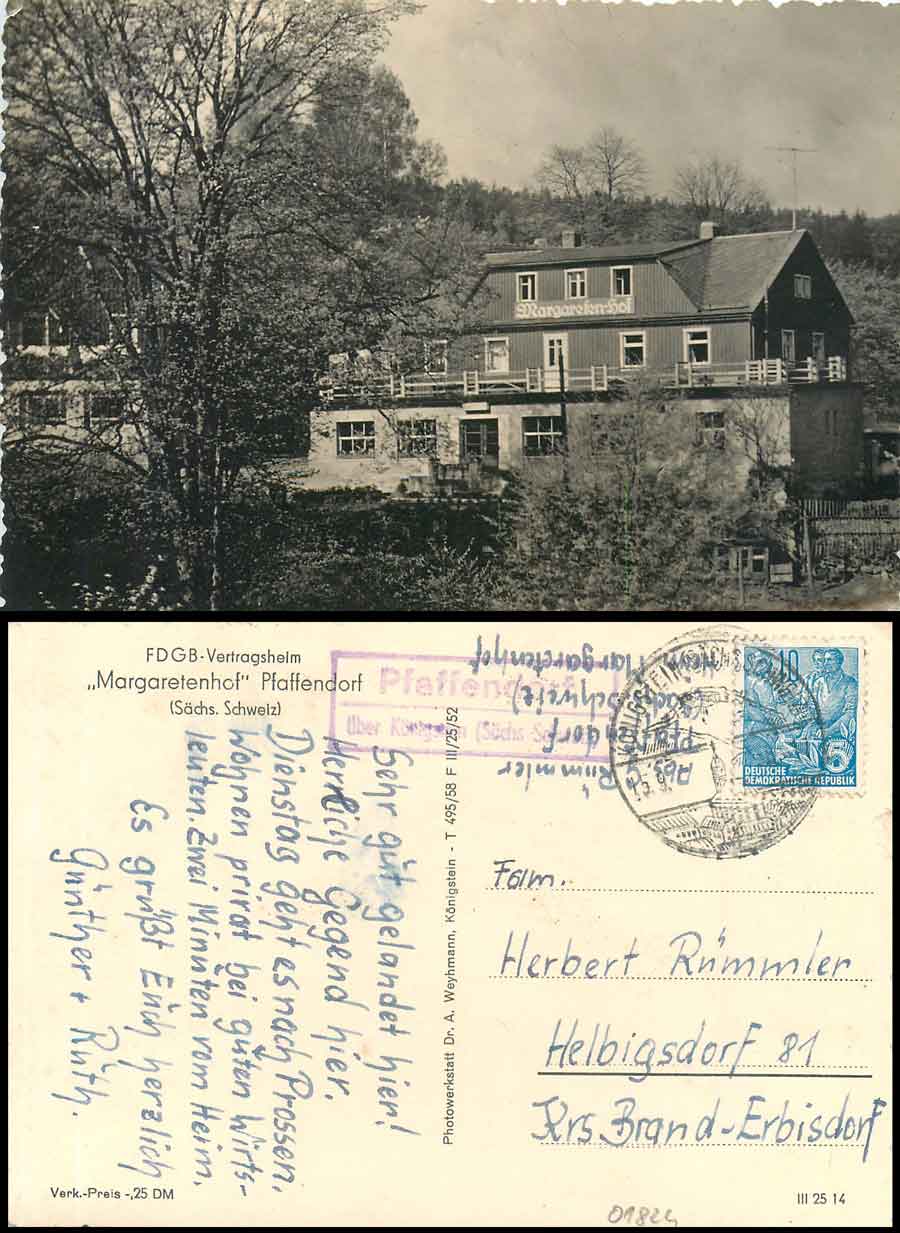 Margareten-Hof
FDGB-Vertragsheim
„Margaretenhof" Pfaffendorf
(Sächs. Schweiz)
Pfaffendorf
über Königstein (Sächs. Schweiz)
Abs. G. Rümmler
Pfaffendorf
(Sächs. Schweiz)
Heim Margaretenhof
10
5
DEUTSCHE
DEMOKRATISCHE REPUBLIK
Sehr gut gelandet hier!
Herrliche Gegend hier.
Dienstag geht es nach Prossen.
Wohnen privat bei guten Wirts-
leuten. Zwei Minuten vom Heim.
Es grüßt Euch herzlich
Günther + Ruth.
Photowerkstatt Dr. A. Weyhmann, Königstein - T 495/58 F III/25/52
Fam.
Herbert Rümmler
Helbigsdorf 81
Krs. Brand-Erbisdorf
Verk.-Preis -,25 DM
III 25 14
01824